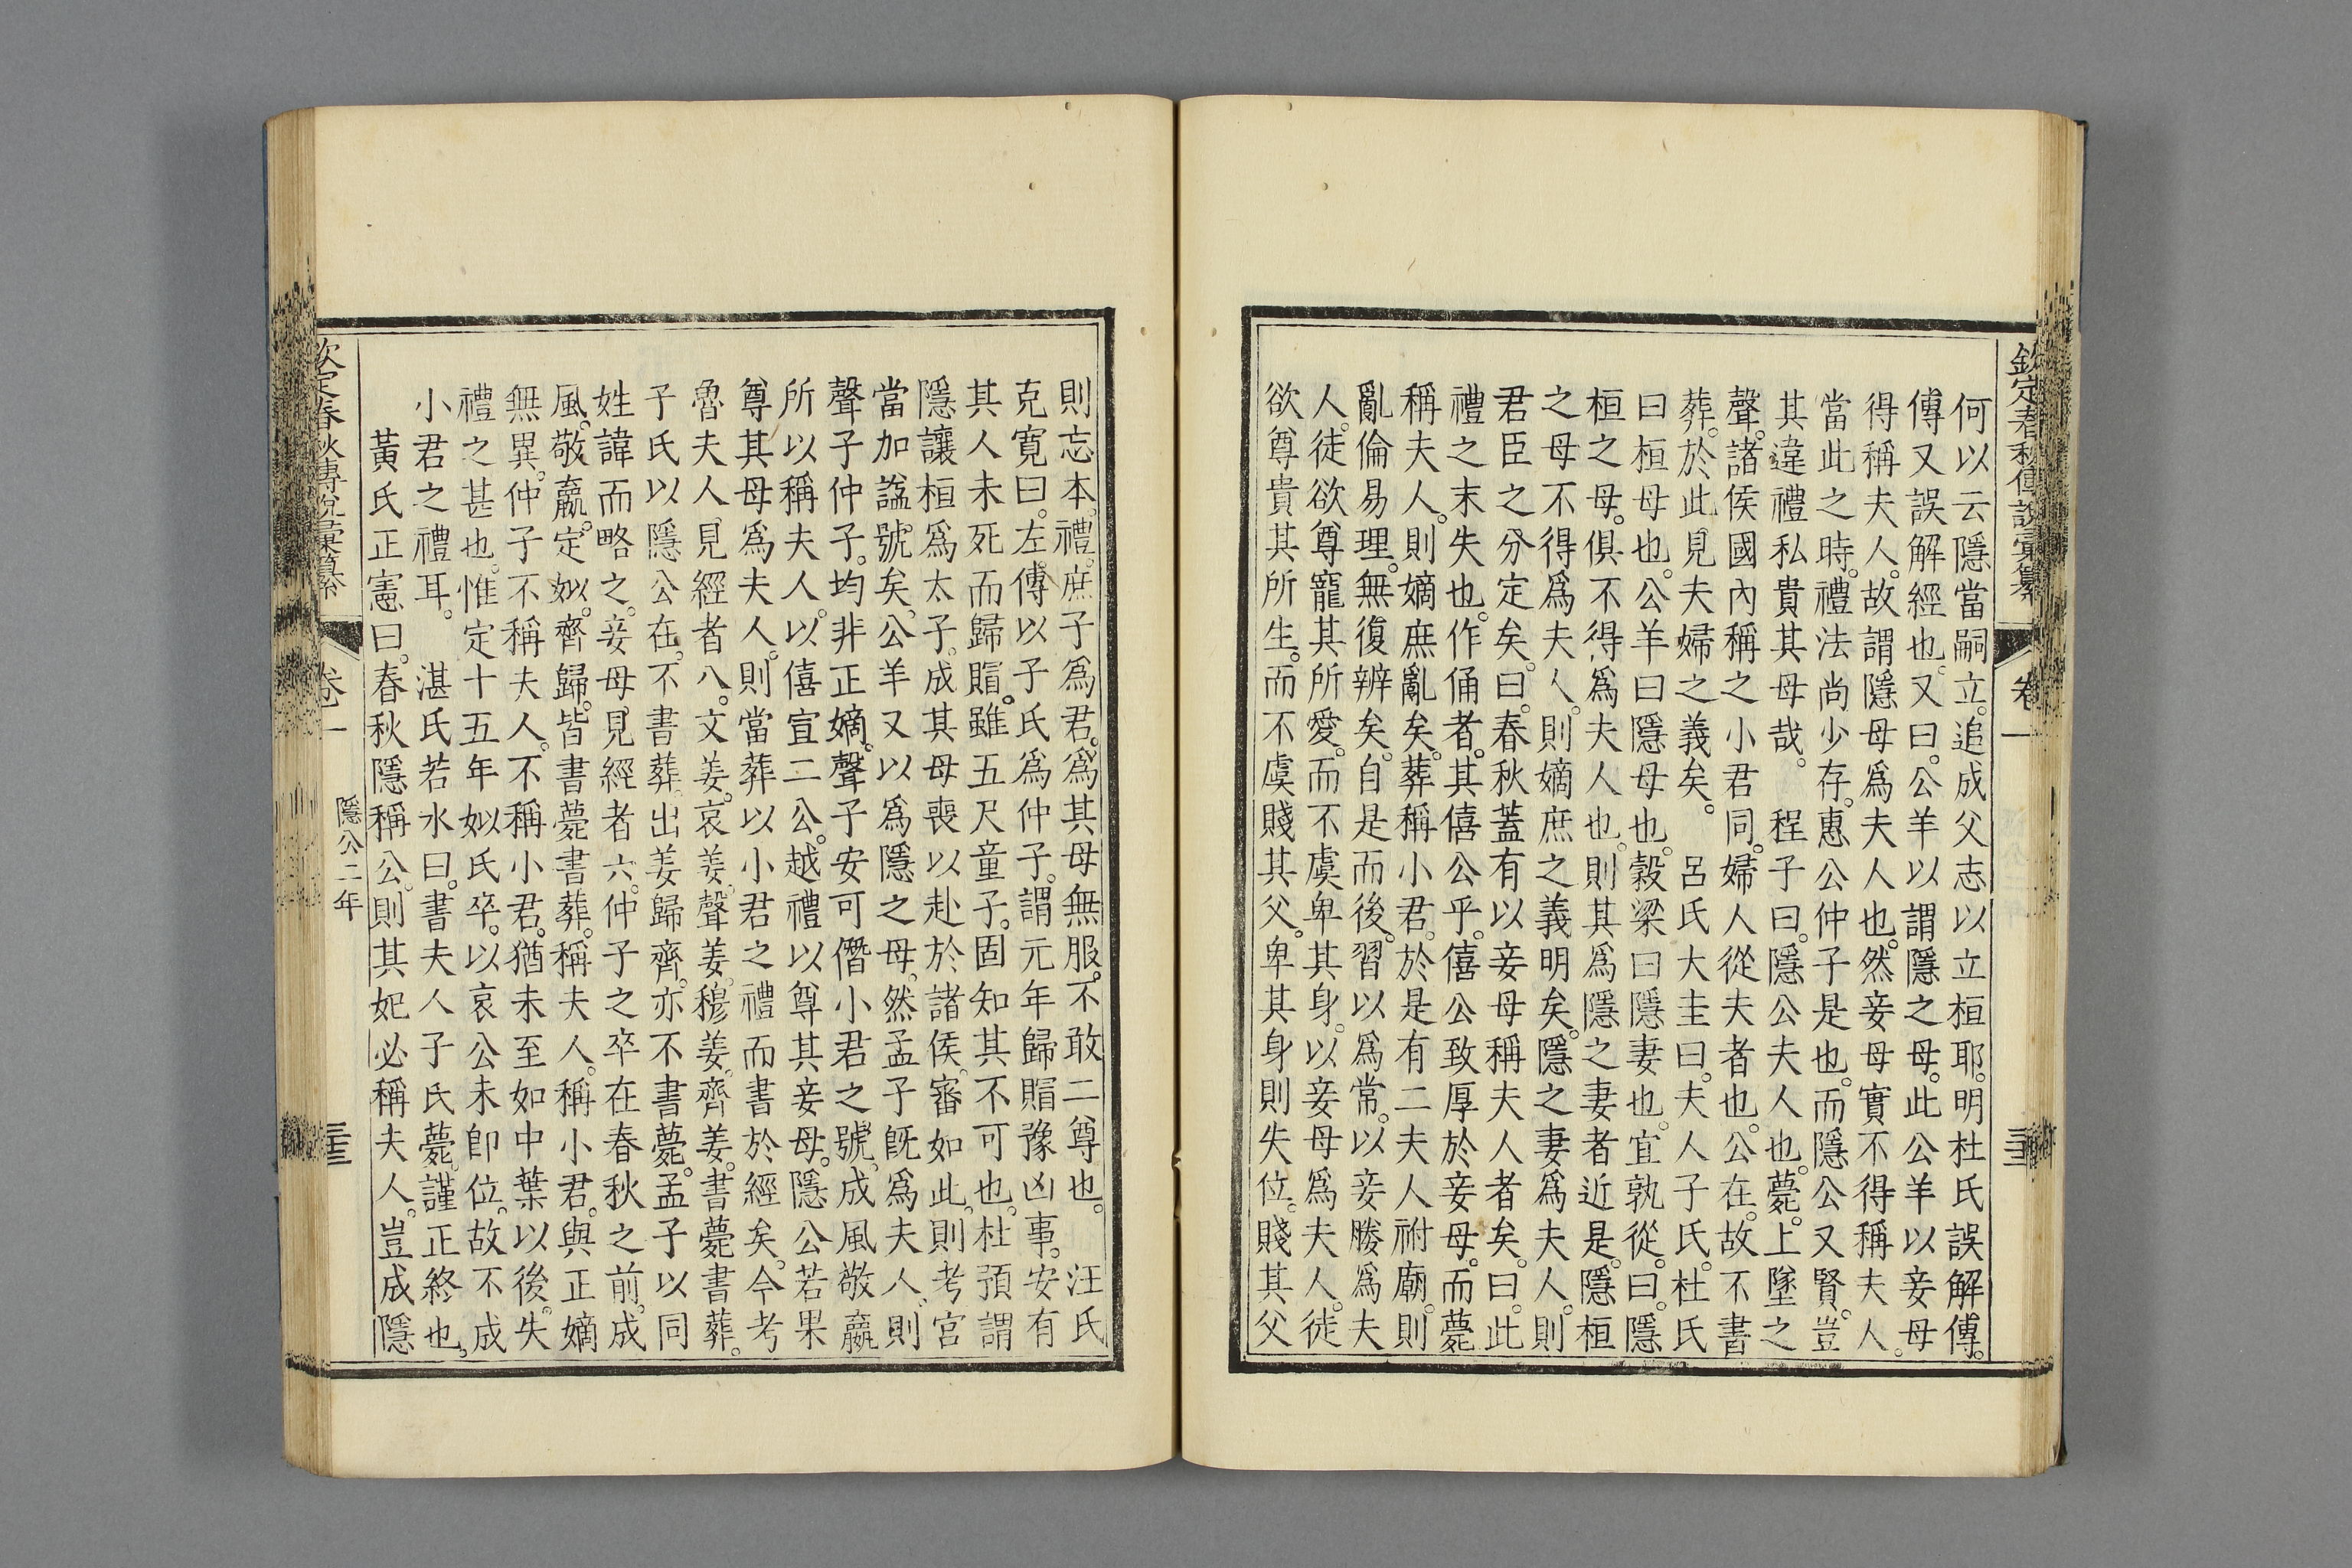 欽定春秋傳說彙纂
卷一
何以云隱當嗣立。追成父志以立桓耶。明杜氏誤解傳。
傳又誤解經也。又曰。公羊以謂隱之母。此公羊以妾母
得稱夫人。故謂隱母為夫人也。然妾母實不得稱夫人。
當此之時。禮法尚少存。惠公仲子是也。而隱公又賢。豈
其違禮私貴其母哉。　程子曰。隱公夫人也。薨。上墜之
聲。諸侯國內稱之小君同。婦人從夫者也。公在。故不書
葬。於此。見夫婦之義矣。　呂氏大圭曰。夫人子氏。杜氏
曰桓母也。公羊曰隱母也。穀梁曰隱妻也。宜孰從。曰。隱
桓之母。俱不得爲夫人也。則其爲隱之妻者近是。隱桓
之母不得爲夫人。則嫡庶之義明矣。隱之妻爲夫人。則
君臣之分定矣。曰。春秋蓋有以妾母稱夫人者矣。曰。此
禮之末失也。作俑者。其僖公乎。僖公致厚於妾母。而薨
稱夫人。則嫡庶亂矣。葬稱小君。於是有二夫人祔廟。則
亂倫易理。無復辨矣。自是而後。習以爲常。以妾媵爲夫
人。徒欲尊寵其所愛。而不虞卑其身。以妾母爲夫人。徒
欲尊貴其所生。而不虞賤其父。卑其身則失位。賤其父
則忘本。禮。庶子爲君。爲其母無服。不敢二尊也。　汪氏
克寬曰。左傳以子氏爲仲子。謂元年歸賵豫凶事。安有
其人未死而歸賵。雖五尺童子。固知其不可也。杜預謂
隱讓桓爲太子。成其母喪以赴於諸侯。審如此。則考宮
當加諡號矣。公羊又以爲隱之母。然孟子旣爲夫人。則
聲子仲子。均非正嫡。聲子安可僭小君之號。成風敬嬴
所以稱夫人。以僖宣二公。越禮以尊其妾母。隱公若果
尊其母爲夫人。則當葬以小君之禮而書於經矣。今考
魯夫人見經者八。文姜。哀姜。聲姜。穆姜。齊姜。書薨書葬。
子氏以隱公在。不書葬。出姜歸齊。亦不書薨。孟子以同
姓諱而略之。妾母。見經者六。仲子之卒在春秋之前。成
風。敬嬴。定姒。齊歸。皆書薨書葬。稱夫人。稱小君。與正嫡
無異。仲子不稱夫人。不稱小君。猶未至如中葉以後。失
禮之甚也。惟定十五年姒氏卒。以哀公未卽位。故不成
小君之禮耳。　湛氏若水曰。書夫人子氏薨。謹正終也。
黃氏正憲曰。春秋隱稱公。則其妃必稱夫人。豈成隱
欽定春秋傳說彙纂
卷一
隱公二年